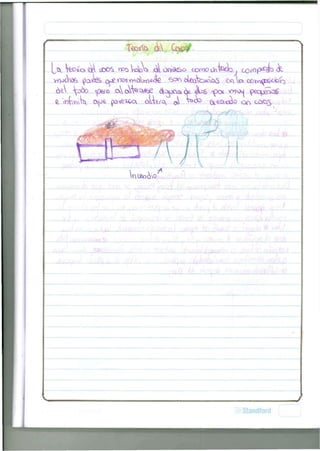 Teoría del Caos
La teoría del caos nos habla del universo como un todo, compuesto de
muchas partes que normalmente son aleatorias en la composición
del todo pero al alterarse alguna de ellas por muy pequeñas
e infinita que parezca altera al todo creando un caos.
Incendio
Standford